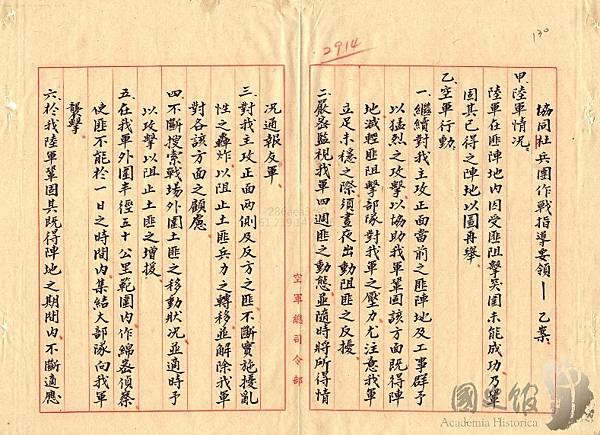 130
2914
協同杜兵團作戰指導要領—乙案
甲.陸軍情况。
陸軍在匪陣地內因受匪阻擊突圍未能成功乃鞏
固其已得之陣地以圖再舉
乙.空軍行動。
一.繼續對我主攻正面當前之匪陣地及工事群予
以猛烈之攻擊以協助我軍鞏固該方面既得陣
地減輕匪阻擊部隊對我軍之壓力尤注意我軍
立足未穩之際須晝夜出動阻匪之反擾
二.嚴密監視我軍四週匪之動態並隨時將所得情
况通報友軍
三.對我主攻正面兩側及反方之匪不斷實施擾亂
性之轟炸以阻止土匪兵力之轉移並解除我軍
對各該方面之顧慮
四.不斷搜索戰場外圍土匪之移動狀况並適時予
以攻擊以阻止土匪之增援
五.在我軍外圍半徑五十公里範圍內作綿密偵察
使匪不能於一日之時間內集結大部隊向我軍
襲擊
六.於我陸軍鞏固其既得陣地之期間內不斷適應
空軍總司令部
國史館
Academia Historica